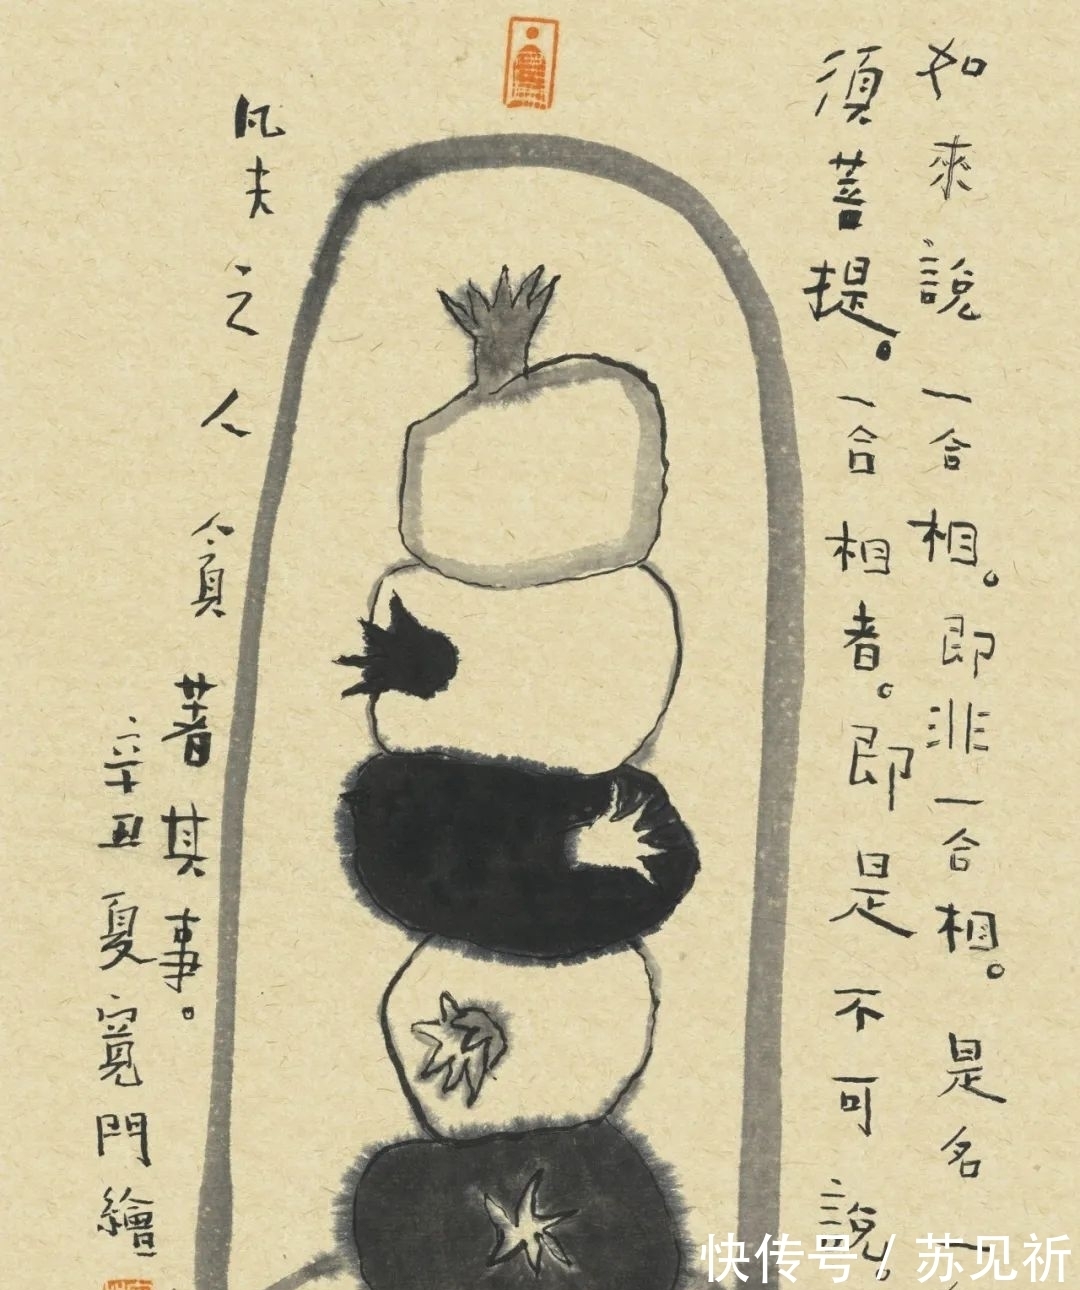 如來說一合相。即非一合相。是名一
須菩提。一合相者。即是不可說。
凡夫之人貪著其事。
辛丑夏寬門繪
快传号 / 苏见祈